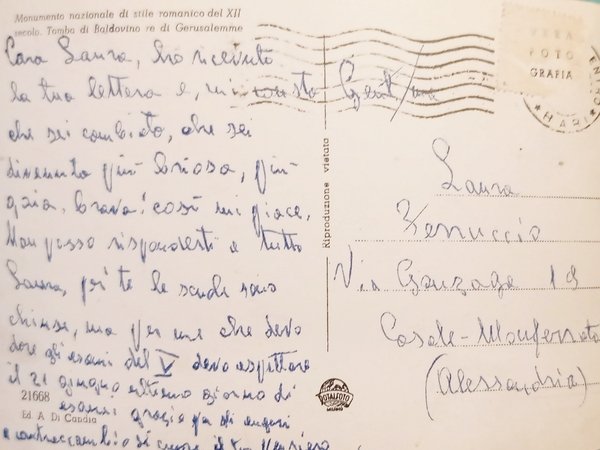 Monumento nazionale di stile romanico del XII
secolo. Tomba di Baldovino re di Gerusalemme
Cara Laura, ho ricevuto
la tua lettera e, mi
che sei cambiata, che sei
diventata più briosa, più
gaia. brava! così mi piace.
Non posso risponderti a tutto
Laura, per te le scuole sono
chiuse, ma per me che devo
dare gli esami del V devo aspettare
il 21 giugno ultimo giorno di
esami grazie per gli auguri
e contraccambio di cuore il tuo
21668
Ed. A. Di Candia
Riproduzione vietata
VERA
FOTO
GRAFIA
BARI
Laura
Ferruccio
Via Gonzaga 19
Casale-Monferrato
(Alessandria)
FOTALFOTO
MILANO